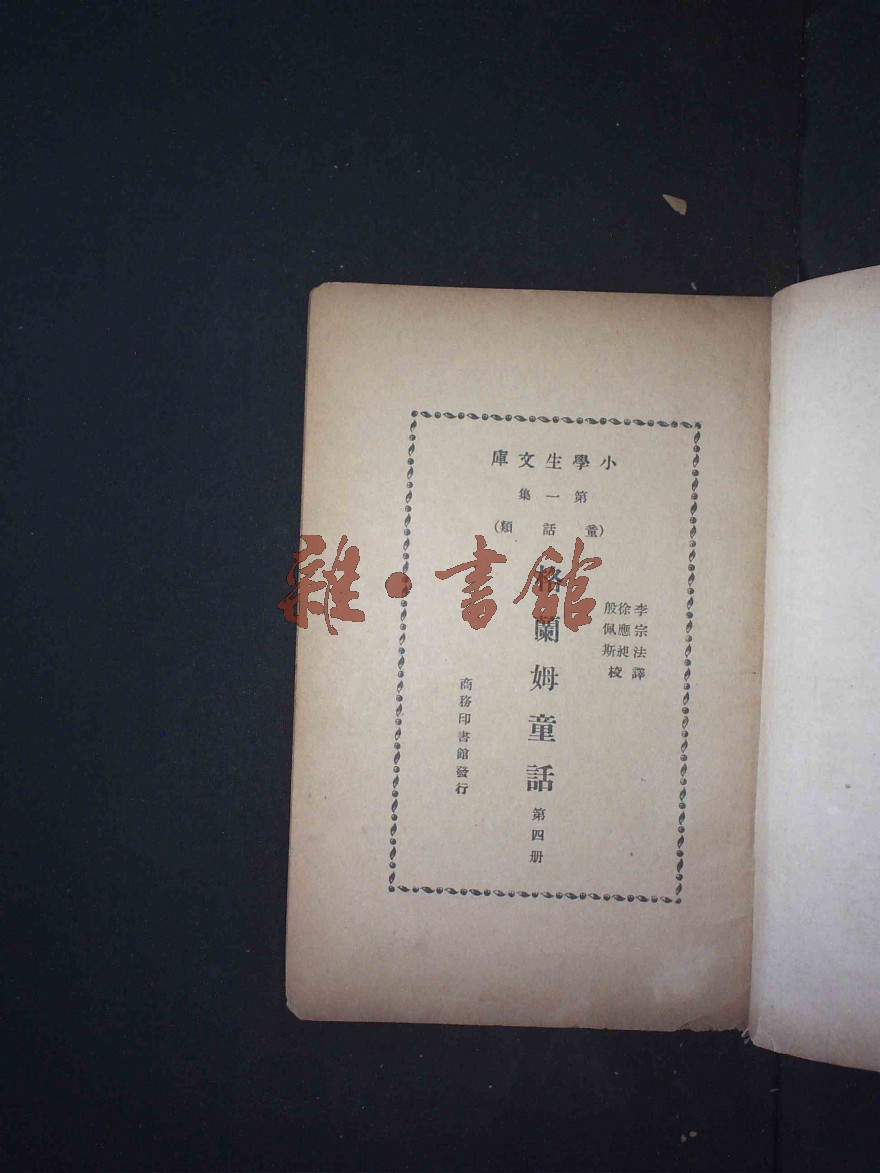 小學生文庫
第一集
(童話類)
李宗法譯
徐應昶
殷佩斯校
格蘭姆童話 第四册
商務印書館發行
雜·書館